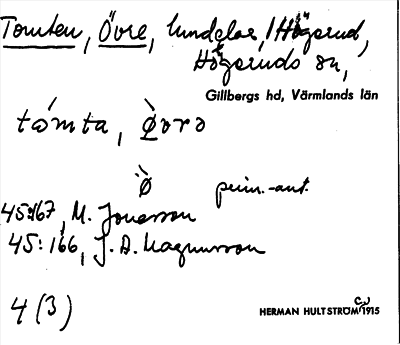 Tomten, Övre, lundelar, i Högerud,
Högeruds sn,
Gillbergs hd, Värmlands län
tómta, ø̀vrə
ø̀ perm.-ant.
45:167, M. Jonasson
45:166, J. A. Magnusson
4 (3)
HERMAN HULTSTRÖM 1915